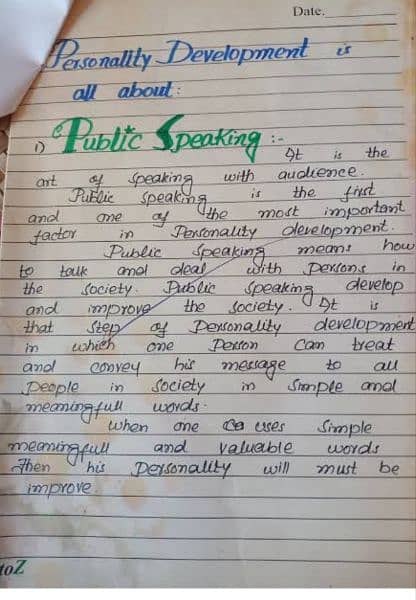 Date.
Personality Development is
all about:
1) Public Speaking :-
It is the
art of speaking with audience.
Public speaking is the first
and one of the most important
factor in Personality development.
Public speaking means how
to talk and deal with Persons in
the society. Public speaking develop
and improve the society. It is
that step of Personality development
in which one Person can treat
and convey his message to all
People in society in simple and
meaningfull words.
when one uses simple
meaningfull and valuable words
then his Personality will must be
improve.
toZ